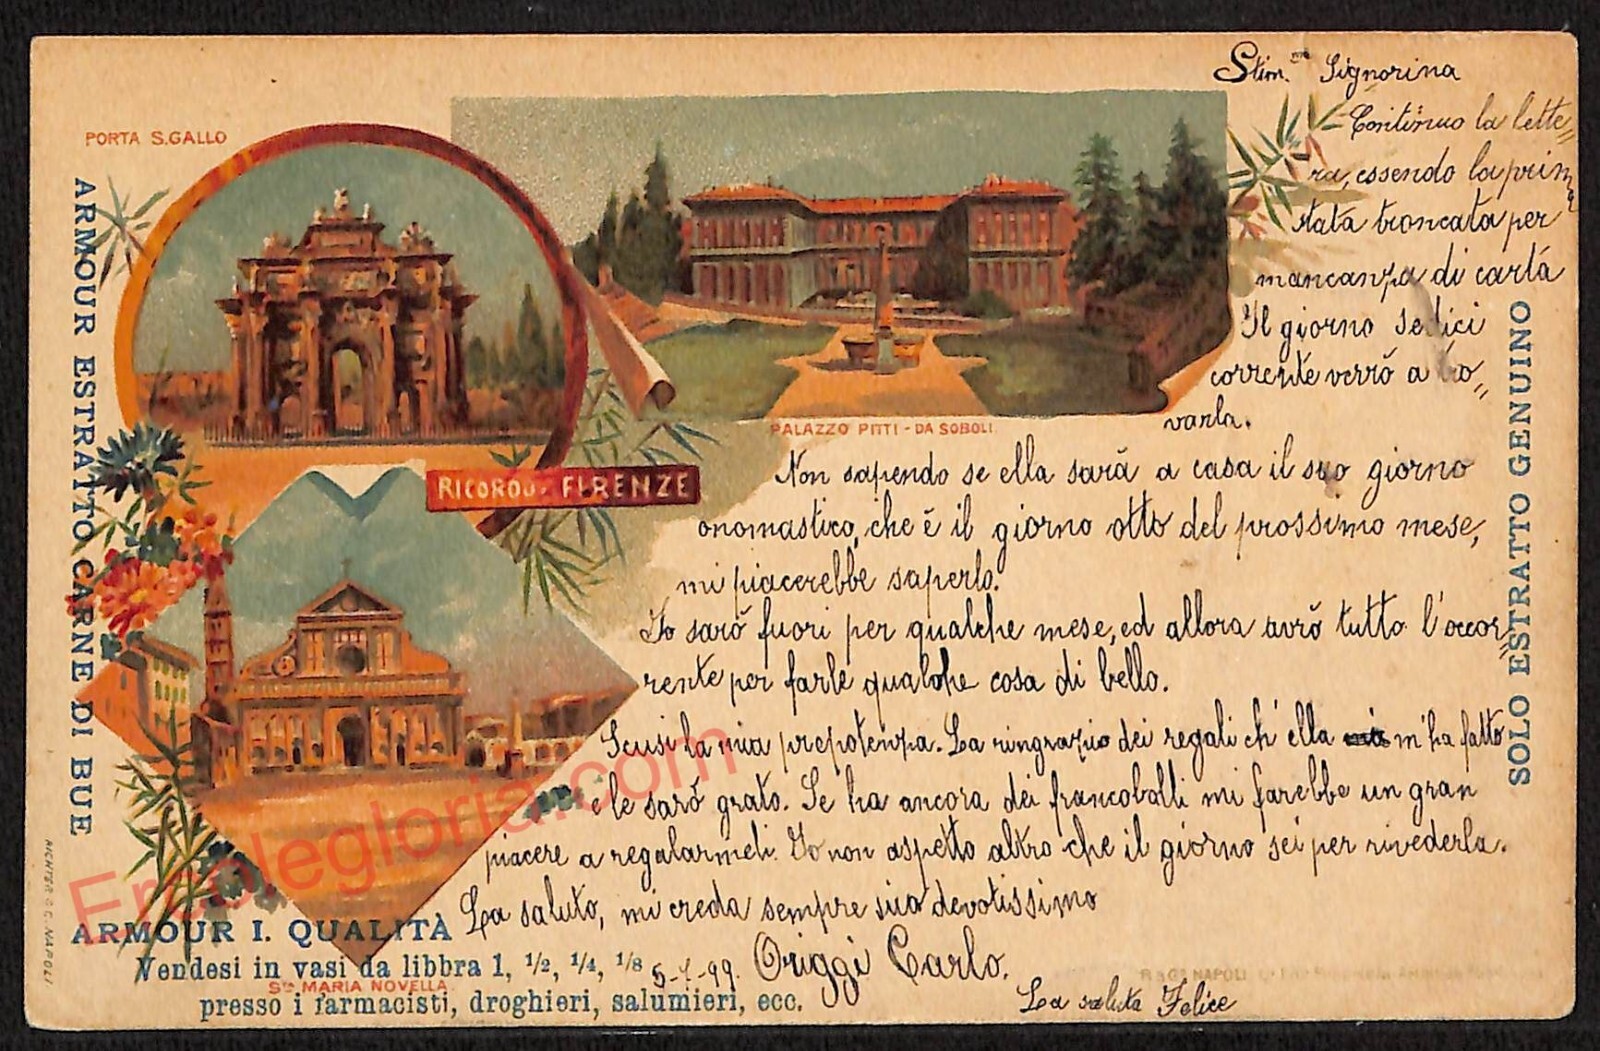 PORTA S. GALLO
ARMOUR ESTRATTO CARNE DI BUE
PALAZZO PITTI - DA S OBOLI
RICORDO DI FIRENZE
SOLO ESTRATTO GENUINO
Stim.ma Signorina
Continuo la lette=
ra, essendo la prima
stata troncata per
mancanza di carta
Il giorno sedici
corrente verrò a tro=
varla.
Non sapendo se ella sarà a casa il suo giorno
onomastico, che è il giorno otto del prossimo mese,
mi piacerebbe saperlo.
Io sarò fuori per qualche mese, ed allora avrò tutto l'occor=
rente per farle qualche cosa di bello.
Scusi la mia prepotenza. La ringrazio dei regali ch'ella m'ha fatto
e le sarò grato. Se ha ancora dei francobolli mi farebbe un gran
piacere a regalarmeli. Io non aspetto altro che il giorno sei per rivederla.
La saluto, mi creda sempre suo devotissimo
Origgi Carlo.
La saluta Felice
ARMOUR I. QUALITÀ
Vendesi in vasi da libbra 1, 1/2, 1/4, 1/8
5-7-99.
Sta MARIA NOVELLA.
presso i farmacisti, droghieri, salumieri, ecc.
RICHTER & C. NAPOLI
Ercolegloria.com